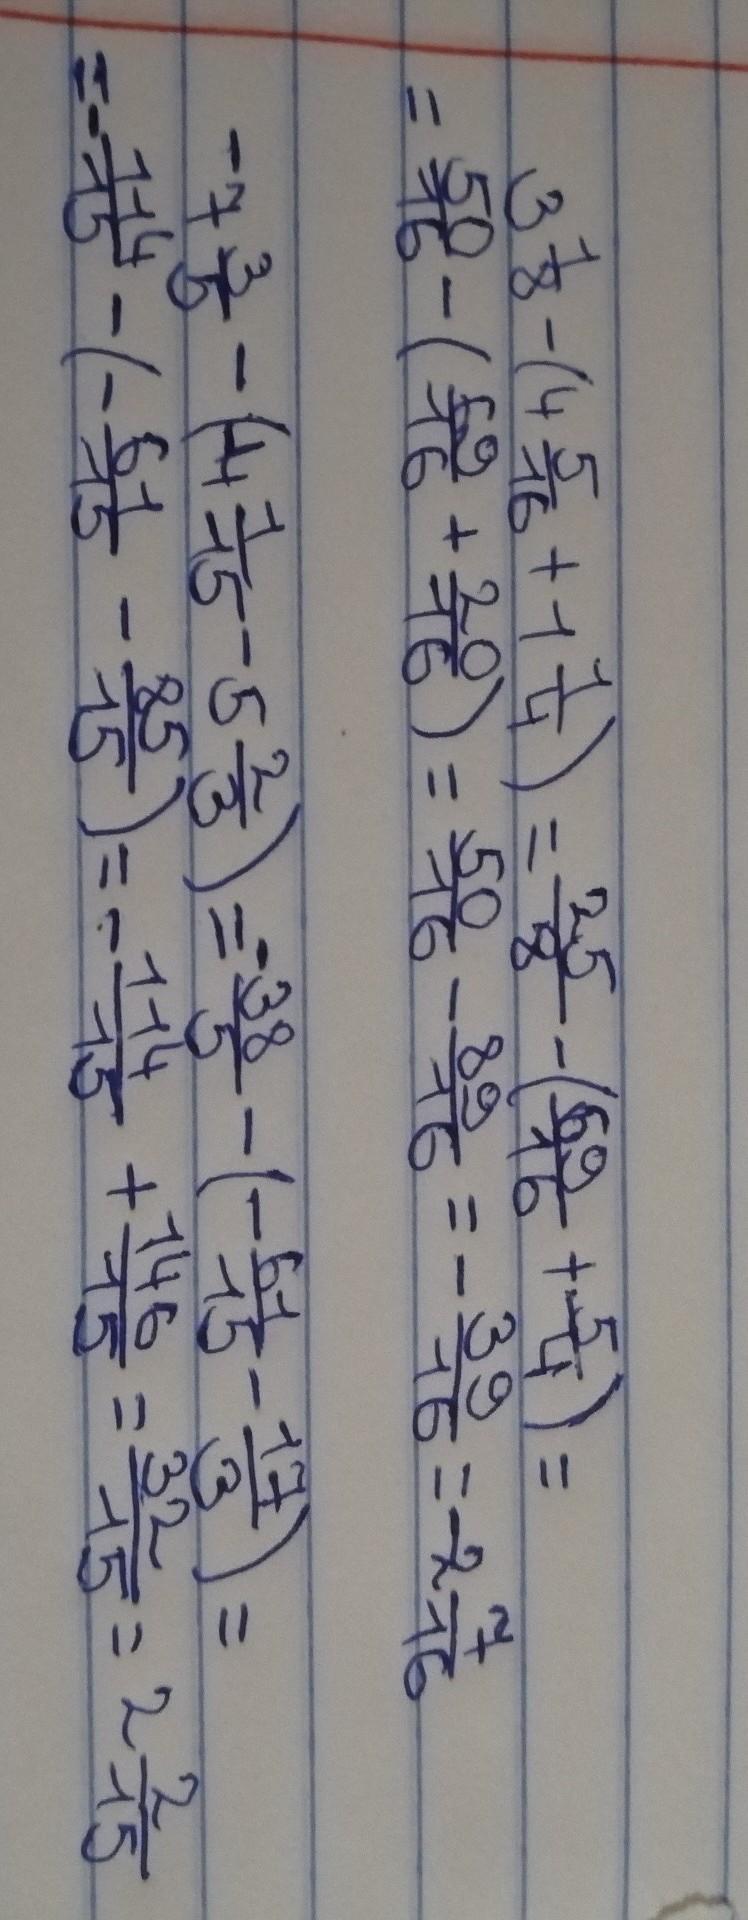 3 1/8 - (4 5/16 + 1 1/4) = 25/8 - (69/16 + 5/4) =
= 50/16 - (69/16 + 20/16) = 50/16 - 89/16 = - 39/16 = -2 7/16
-7 3/5 - (4 1/15 - 5 2/3) = -38/5 - (- 61/15 - 17/3) =
= - 114/15 - (- 61/15 - 85/15) = - 114/15 + 146/15 = 32/15 = 2 2/15